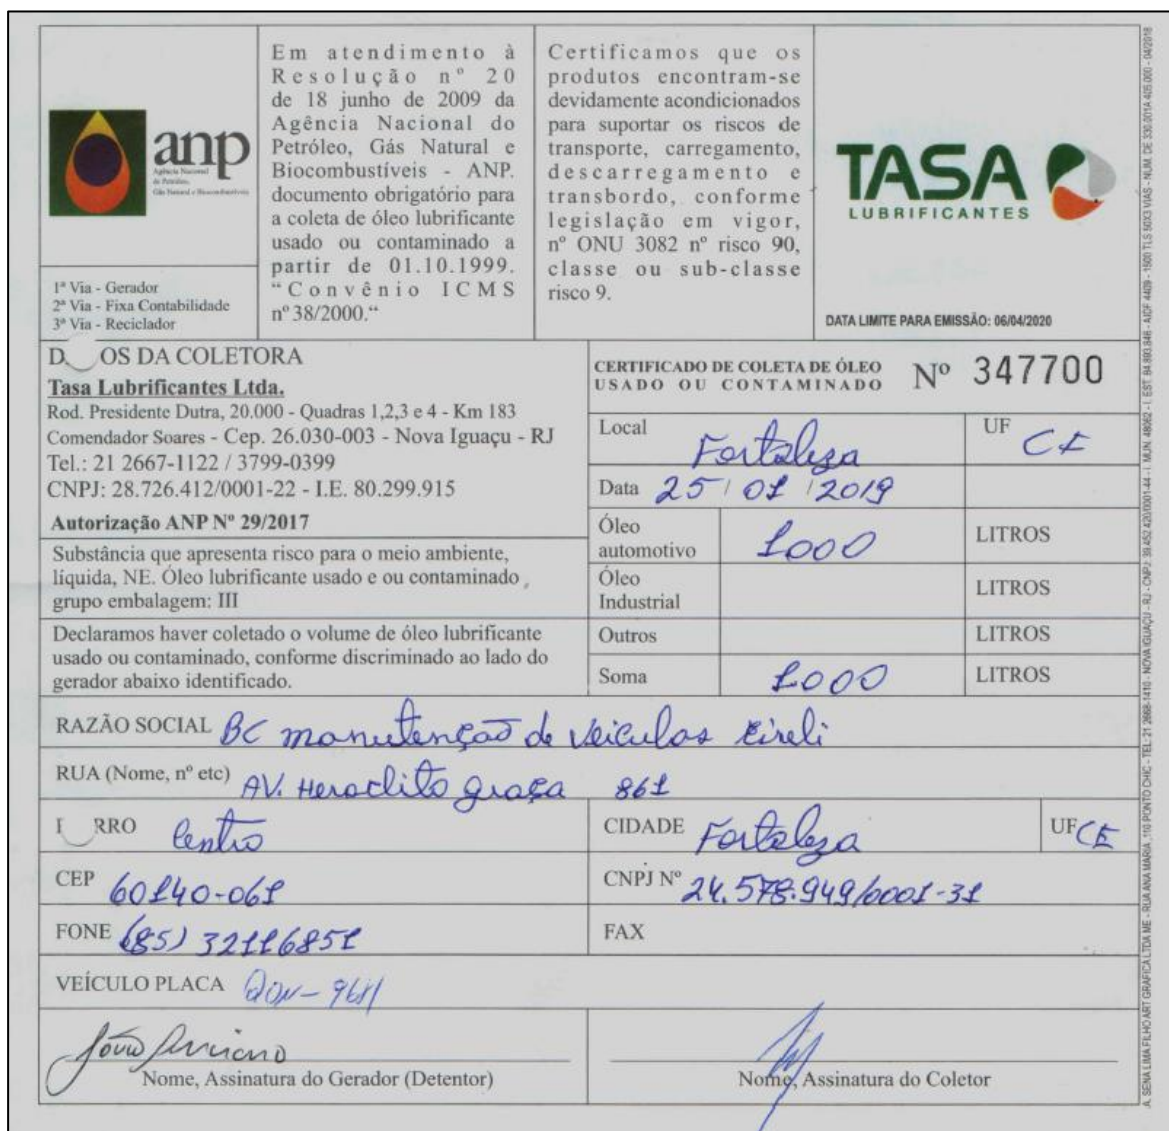 anp
Agência Nacional
do Petróleo,
Gás Natural e Biocombustíveis
1ª Via - Gerador
2ª Via - Fixa Contabilidade
3ª Via - Reciclador
Em atendimento à
Resolução nº 20
de 18 junho de 2009 da
Agência Nacional do
Petróleo, Gás Natural e
Biocombustíveis - ANP.
documento obrigatório para
a coleta de óleo lubrificante
usado ou contaminado a
partir de 01.10.1999.
“Convênio ICMS
nº 38/2000.“
Certificamos que os
produtos encontram-se
devidamente acondicionados
para suportar os riscos de
transporte, carregamento,
descarregamento e
transbordo, conforme
legislação em vigor,
nº ONU 3082 nº risco 90,
classe ou sub-classe
risco 9.
TASA
LUBRIFICANTES
DATA LIMITE PARA EMISSÃO: 06/04/2020
D OS DA COLETORA
Tasa Lubrificantes Ltda.
Rod. Presidente Dutra, 20.000 - Quadras 1,2,3 e 4 - Km 183
Comendador Soares - Cep. 26.030-003 - Nova Iguaçu - RJ
Tel.: 21 2667-1122 / 3799-0399
CNPJ: 28.726.412/0001-22 - I.E. 80.299.915
Autorização ANP Nº 29/2017
Substância que apresenta risco para o meio ambiente,
líquida, NE. Óleo lubrificante usado e ou contaminado ,
grupo embalagem: III
Declaramos haver coletado o volume de óleo lubrificante
usado ou contaminado, conforme discriminado ao lado do
gerador abaixo identificado.
CERTIFICADO DE COLETA DE ÓLEO
USADO OU CONTAMINADO Nº 347700
Local Fortaleza UF CE
Data 25/01/2019
Óleo automotivo 1000 LITROS
Óleo Industrial LITROS
Outros LITROS
Soma 1000 LITROS
RAZÃO SOCIAL BC manutenção de veiculos Eireli
RUA (Nome, nº etc) AV. Heraclito graça 861
RRO Centro CIDADE Fortaleza UF CE
CEP 60140-061 CNPJ Nº 24.578.949/0001-31
FONE (85) 32116851 FAX
VEÍCULO PLACA
Nome, Assinatura do Gerador (Detentor) Nome, Assinatura do Coletor